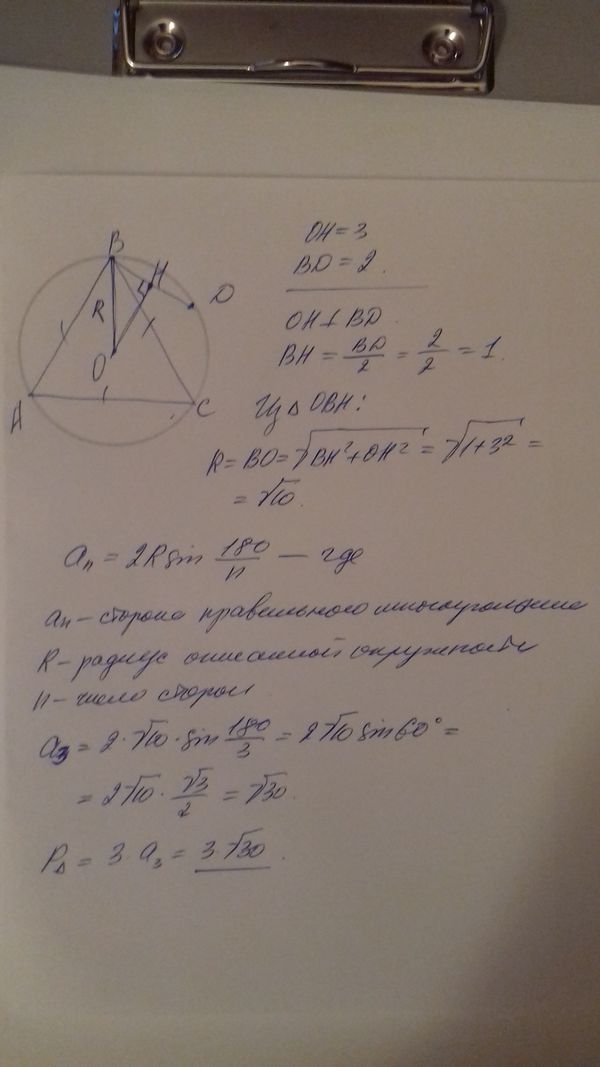 B
H
D
R
O
A
C
OH = 3
BD = 2.
OH ⊥ BD
BH = BD/2 = 2/2 = 1.
Из △ OBH:
R = BO = √(BH² + OH²) = √(1 + 3²) =
= √10.
aₙ = 2R sin 180/n — где
aₙ – сторона правильного многоугольника
R – радиус описанной окружности
n – число сторон
a₃ = 2 · √10 · sin 180/3 = 2√10 sin 60° =
= 2√10 · √3/2 = √30.
P△ = 3 · a₃ = 3 · √30.